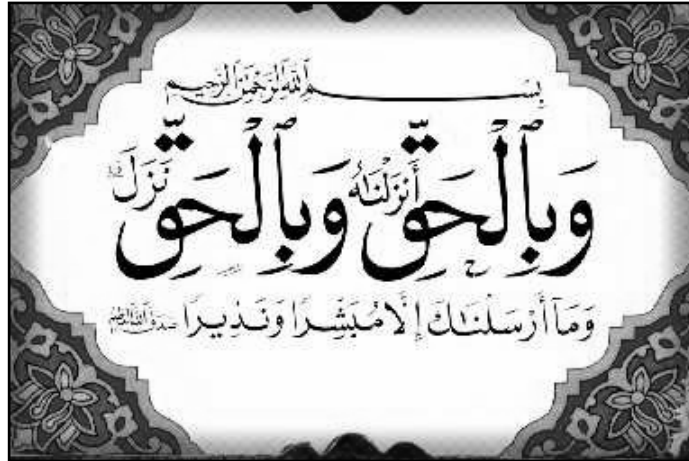 بِسْمِ اللّٰهِ الرَّحْمٰنِ الرَّحِيمِ
وَبِٱلْحَقِّ أَنزَلْنَٰهُ وَبِٱلْحَقِّ نَزَلَ
وَمَآ أَرْسَلْنَٰكَ إِلَّا مُبَشِّرًا وَنَذِيرًا صدق الله العظيم